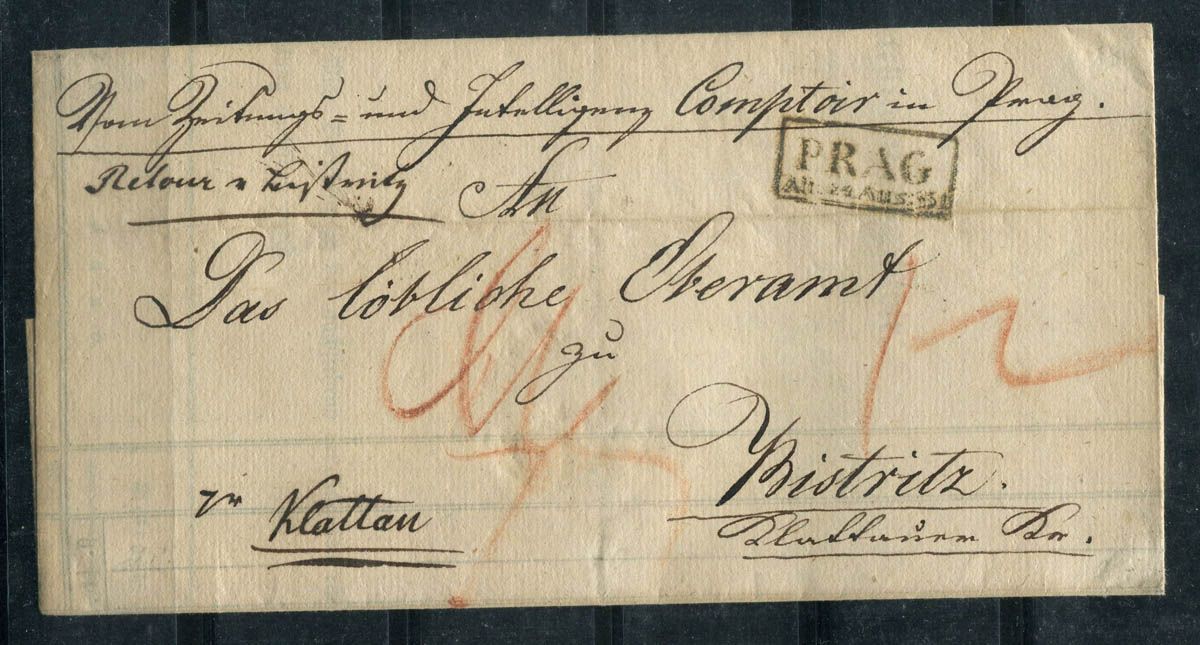 Vom Zeitungs= und Intelligenz Comptoir in Prag.
PRAG
24. AUG:
Retour v Bistritz
An
Das löbliche Oberamt
zu
Bistritz.
pr Klattau
Klattauer Kr.